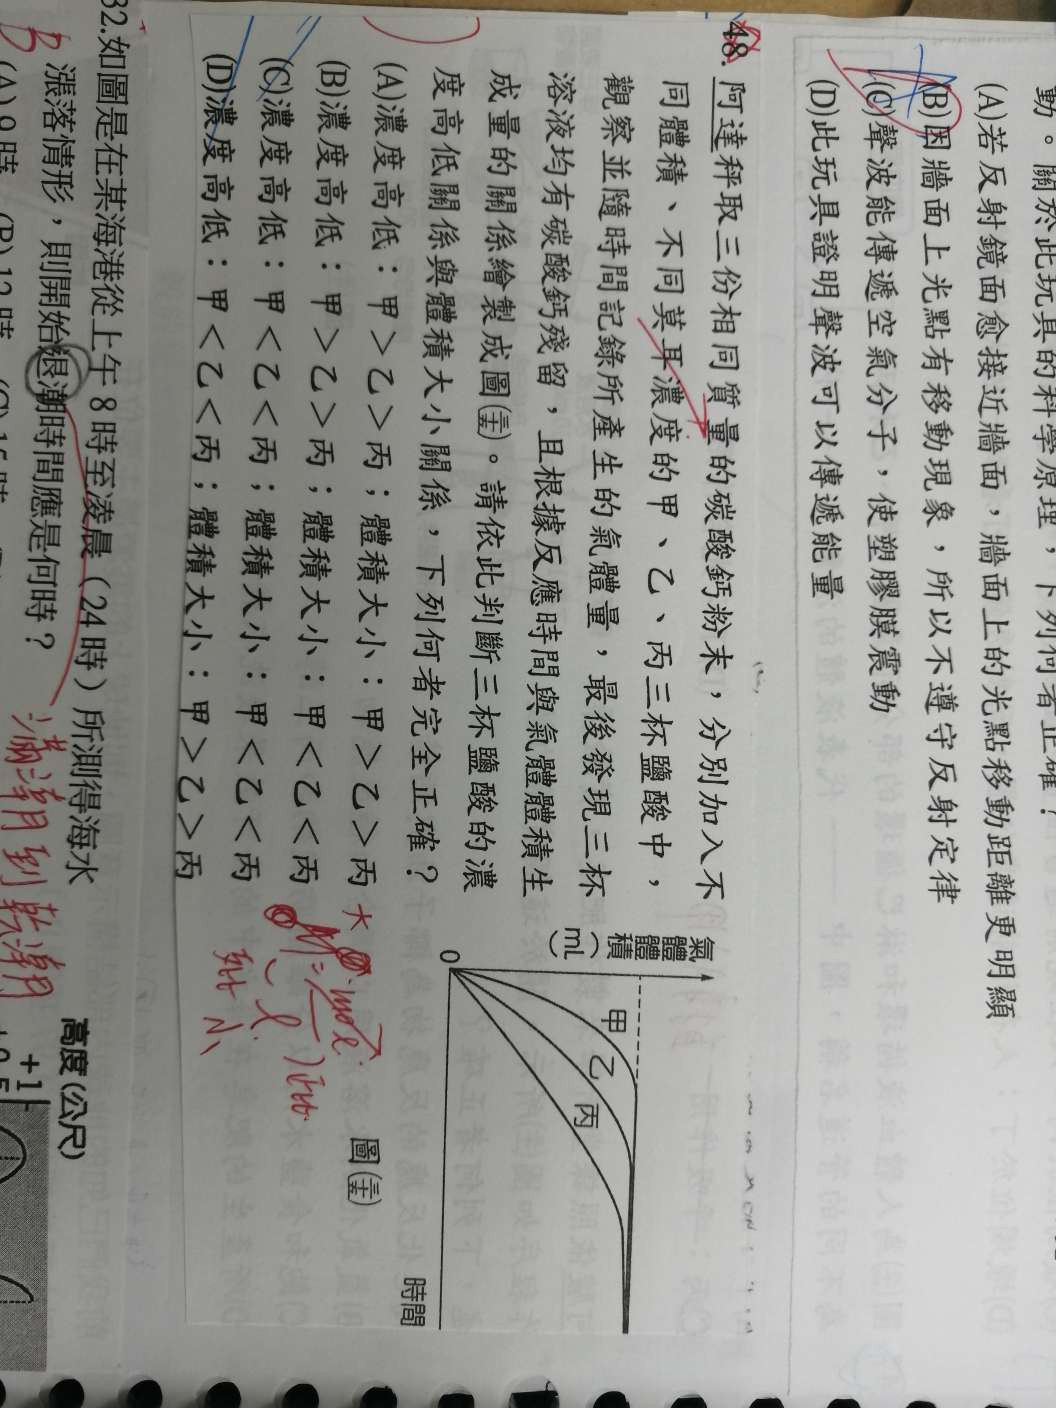 動。關於此玩具的科學原理，下列何者正確？
(A)若反射鏡面愈接近牆面，牆面上的光點移動距離更明顯
(B)因牆面上光點有移動現象，所以不遵守反射定律
(C)聲波能傳遞空氣分子，使塑膠膜震動
(D)此玩具證明聲波可以傳遞能量
48. 阿達秤取三份相同質量的碳酸鈣粉末，分別加入不
同體積、不同莫耳濃度的甲、乙、丙三杯鹽酸中，
觀察並隨時間記錄所產生的氣體量，最後發現三杯
溶液均有碳酸鈣殘留，且根據反應時間與氣體體積生
成量的關係繪製成圖(三五)。請依此判斷三杯鹽酸的濃
度高低關係與體積大小關係，下列何者完全正確？
(A)濃度高低：甲＞乙＞丙；體積大小：甲＞乙＞丙
(B)濃度高低：甲＞乙＞丙；體積大小：甲＜乙＜丙
(C)濃度高低：甲＜乙＜丙；體積大小：甲＜乙＜丙
(D)濃度高低：甲＜乙＜丙；體積大小：甲＞乙＞丙
氣體體積(mL)
甲
乙
丙
0
時間
圖(三五)
大
M=
mol
l
小
32.如圖是在某海港從上午 8 時至凌晨（24 時）所測得海水
B
漲落情形，則開始退潮時間應是何時？
滿潮到乾潮
高度(公尺)
+1